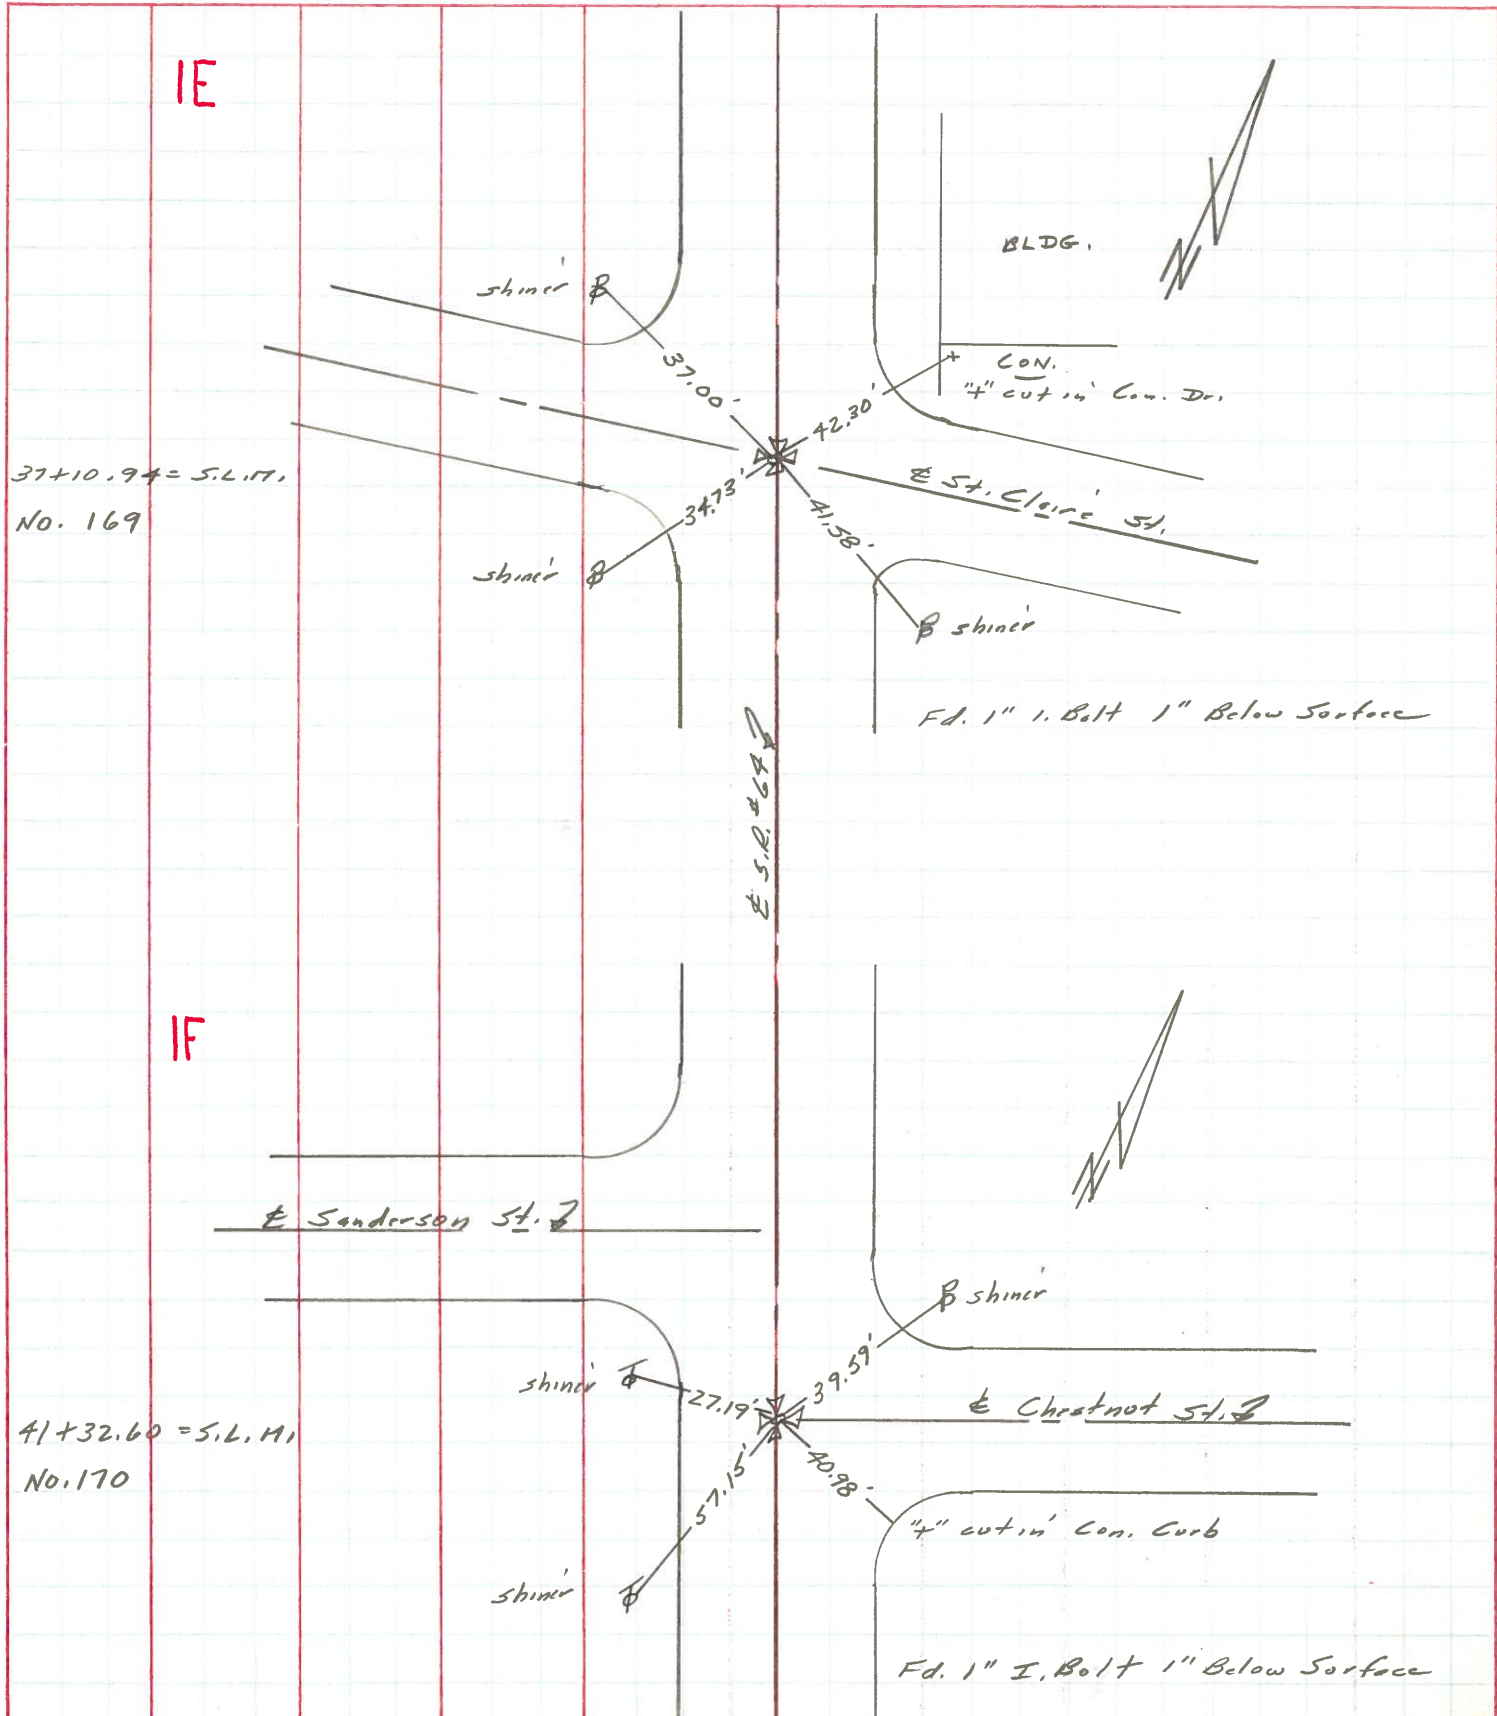 1E
N
BLDG.
shiner
37.00'
CON.
"+" cut in Con. Dr.
42.30'
37+10.94 = S.L.M.
No. 169
34.73'
℄ St. Claire St.
41.58'
shiner
shiner
Fd. 1" I. Bolt 1" Below Surface
℄ S.R. #64
1F
N
℄ Sanderson St.
shiner
39.59'
shiner
27.19'
℄ Chestnut St.
41+32.60 = S.L.M.
No. 170
57.15'
40.98'
"+" cut in Con. Curb
shiner
Fd. 1" I. Bolt 1" Below Surface